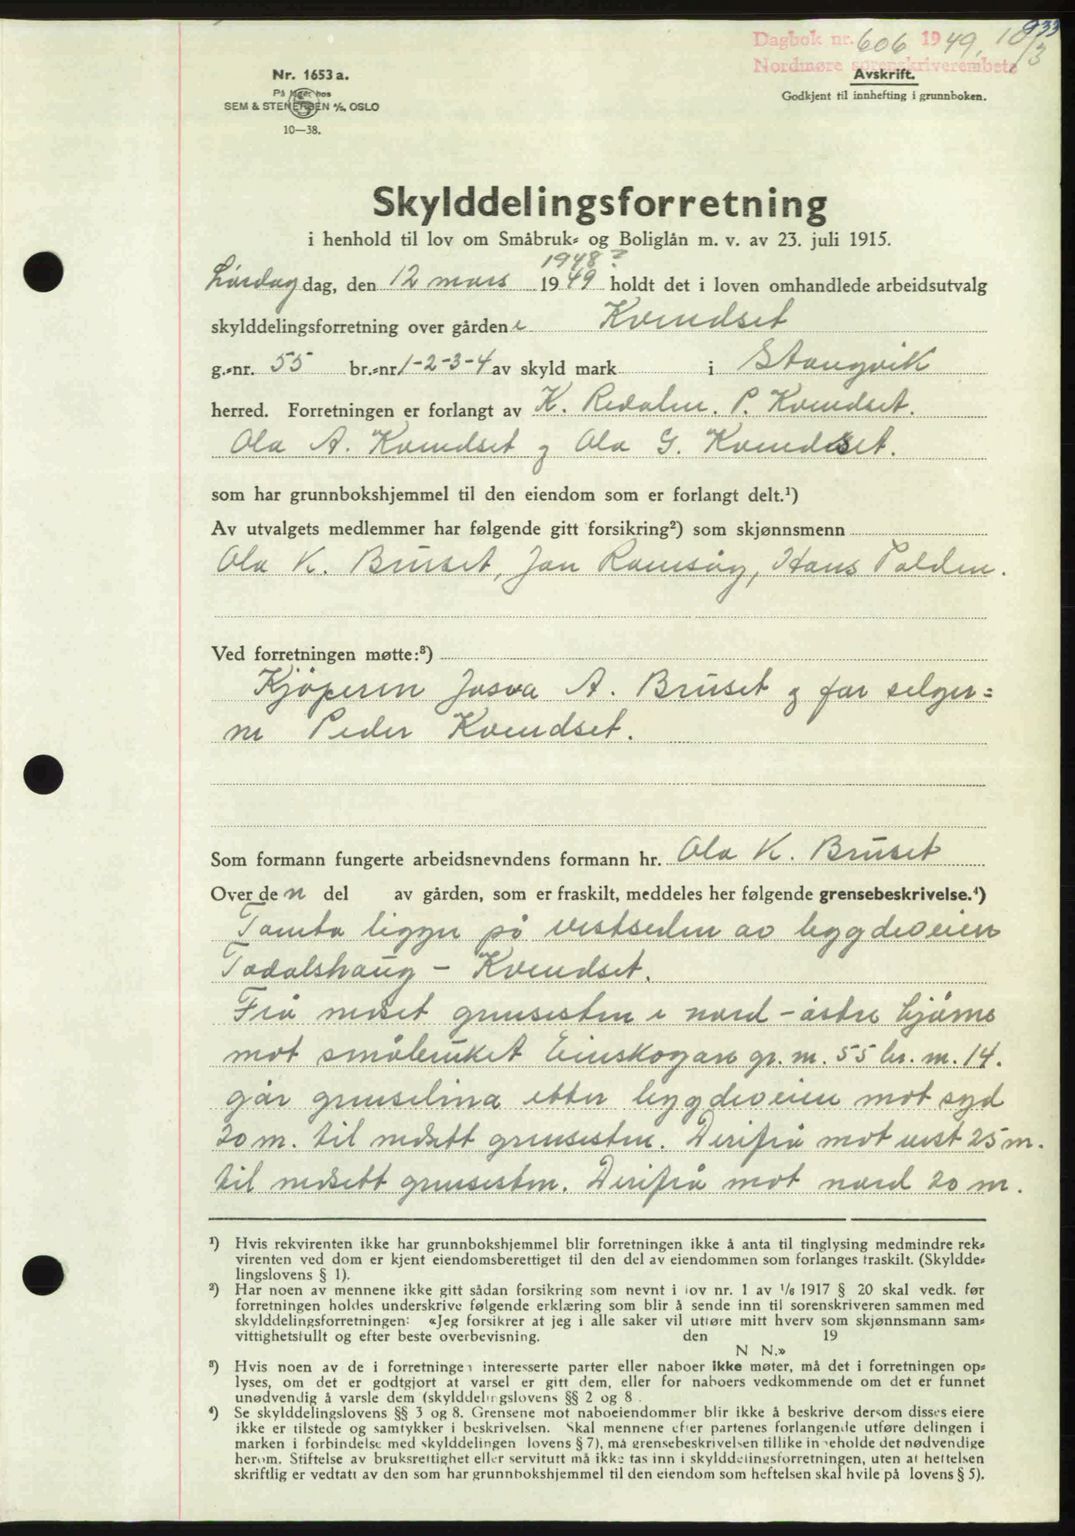 933
Dagbok nr. 606 1949. 10/3
Nordmøre sorenskriverembete
Nr. 1653 a.
Avskrift.
På lager hos
SEM & STENERSEN A/S, OSLO
Godkjent til innhefting i grunnboken.
10—38.
Skylddelingsforretning
i henhold til lov om Småbruk- og Boliglån m. v. av 23. juli 1915.
1948?
Lørdag dag, den 12 mars 1949 holdt det i loven omhandlede arbeidsutvalg
skylddelingsforretning over gårdene Kvendset
g.-nr. 55 br.-nr. 1-2-3-4 av skyld mark i Stangvik
herred. Forretningen er forlangt av K. Redalen. P. Kvendset.
Ola A. Kvendset og Ola G. Kvendset.
som har grunnbokshjemmel til den eiendom som er forlangt delt.¹)
Av utvalgets medlemmer har følgende gitt forsikring²) som skjønnsmenn
Ola K. Bruset, Jon Ramsøy, Hans Polden.
Ved forretningen møtte:³)
Kjøperen Josva A. Bruset og for selger=
ne Peder Kvendset.
Som formann fungerte arbeidsnevndens formann hr. Ola K. Bruset
Over den del av gården, som er fraskilt, meddeles her følgende grensebeskrivelse.⁴)
Tomta ligger på vestsiden av bygdeveien
Todalshaug - Kvendset.
Frå nedset grensesten i nord-østre hjørne
mot småbruket Einskogan gr. nr. 55 br. nr. 14.
går grenselina etter bygdeveien mot syd
20 m. til nedsett grensesten. Derifrå mot vest 25 m.
til nedsett grensesten. Derifrå mot nord 20 m.
¹) Hvis rekvirenten ikke har grunnbokshjemmel blir forretningen ikke å anta til tinglysing medmindre rek-
virenten ved dom er kjent eiendomsberettiget til den del av eiendommen som forlanges fraskilt. (Skyldde-
lingslovens § 1).
²) Har noen av mennene ikke gitt sådan forsikring som nevnt i lov nr. 1 av 1/6 1917 § 20 skal vedk. før
forretningen holdes underskrive følgende erklæring som blir å sende inn til sorenskriveren sammen med
skylddelingsforretningen: «Jeg forsikrer at jeg i alle saker vil utføre mitt hverv som skjønnsmann sam-
vittighetsfullt og efter beste overbevisning. den 19
N N.»
³) Hvis noen av de i forretningen interesserte parter eller naboer ikke møter, må det i forretningen op-
lyses, om det er godtgjort at varsel er gitt dem, eller for naboers vedkommende om det er funnet
unødvendig å varsle dem (skylddelingslovens §§ 2 og 8.
⁴) Se skylddelingslovens §§ 3 og 8. Grensene mot naboeiendommer blir ikke å beskrive dersom disses eiere
ikke er tilstede og samtykker i beskrivelsen. Skal mennene efter partenes forlangende utføre delingen i
marken i forbindelse med skylddelingen lovens § 7), må grensebeskrivelsen tillike inneholde det nødvendige
herom. Stiftelse av bruksrettighet eller servitutt må ikke tas inn i skylddelingsforretningen, uten at heftelsen
skriftlig er vedtatt av den som har grunnbokshjemmel til den eiendom som heftelsen skal hvile på lovens § 5).